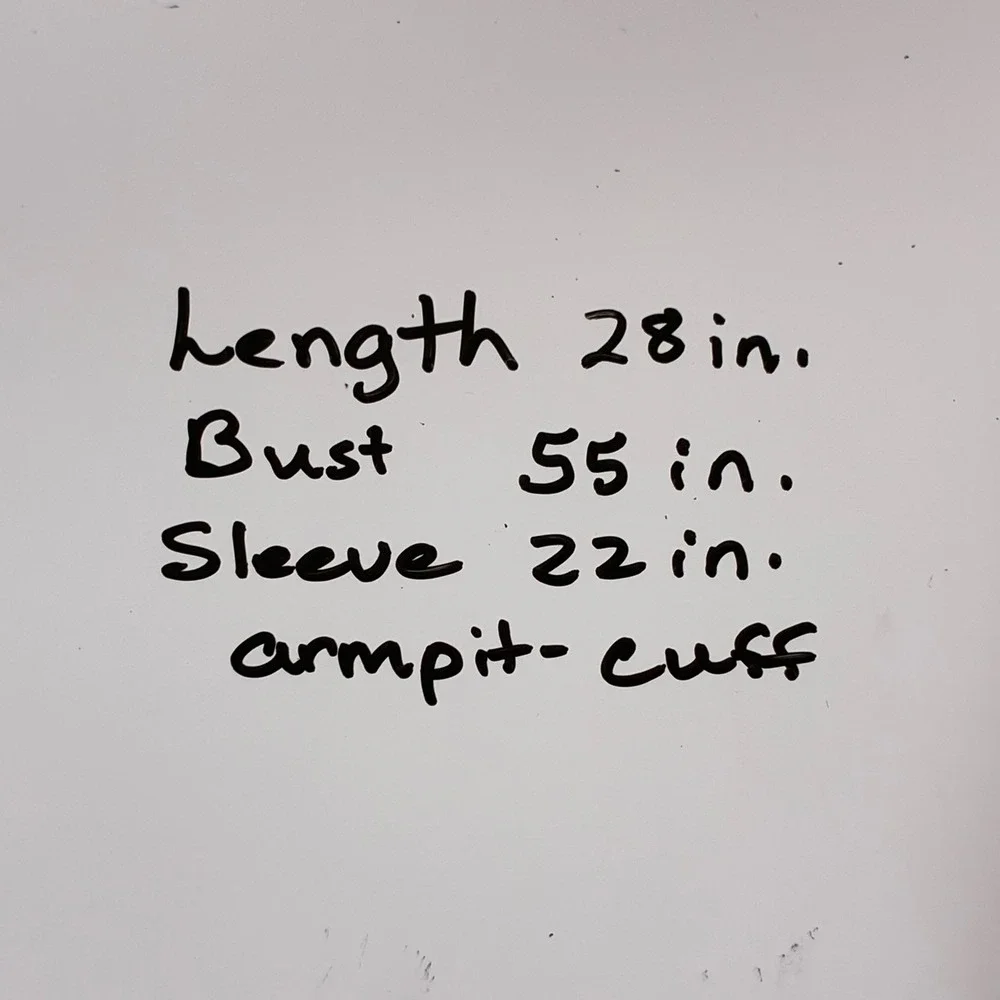 Length 28 in.
Bust 55 in.
Sleeve 22 in.
armpit - cuff